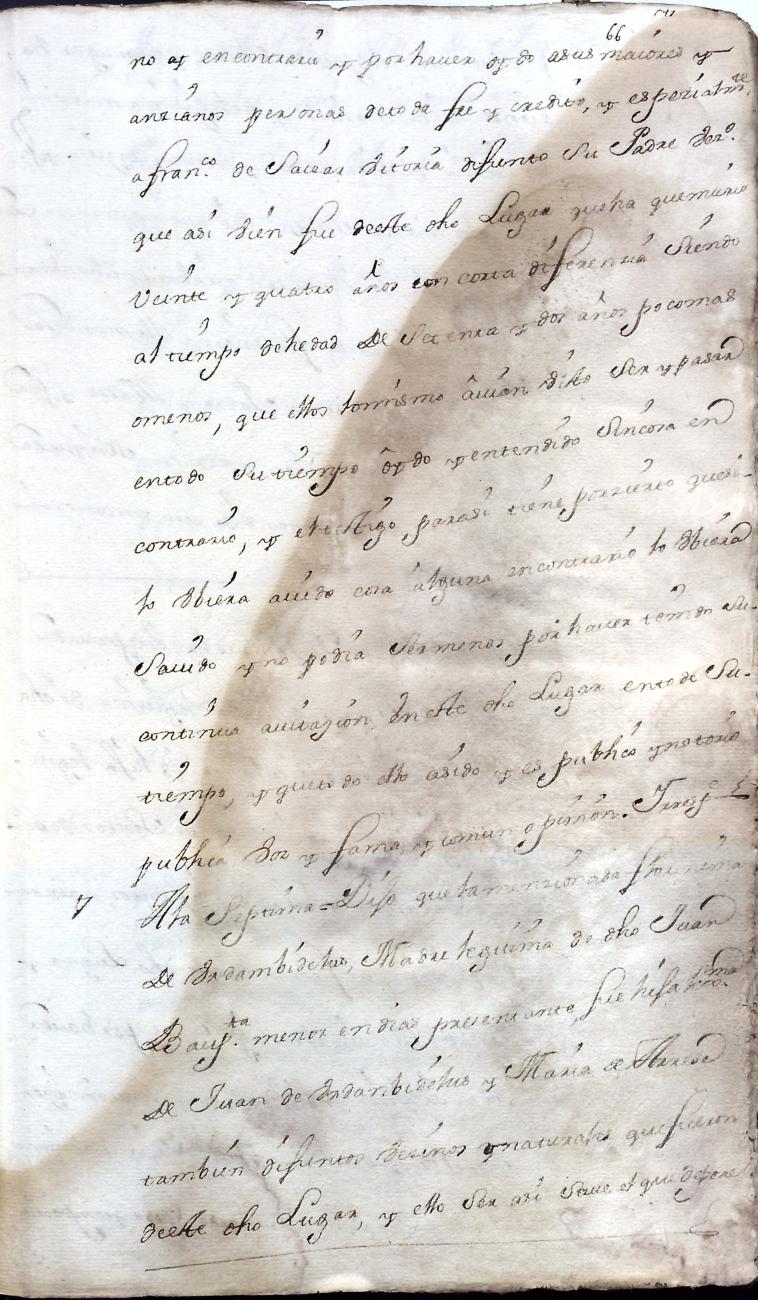 66
no ay encontrario y por haver oydo a sus maiores y
anzianos personas de toda fee y credito, y espezialmte.
a franco. de Saicar Vitoria difunto su Padre Vezo.
que asi vien fue de este dho Lugar y ha que murio
veinte y quatro años con corta diferenzia siendo
al tiempo de hedad de setenta y dos años poco mas
o menos, que ellos lo mismo avian visto ser y pasar
en todo su tiempo oydo y entendido sin cosa en
contrario, y el testigo para si tiene por zierto que si
lo ubiera avido cosa alguna en contrario lo ubiera
savido y no podia ser menos por haver tenido su
continua avitazion en este dho Lugar en todo su
tiempo, y que todo ello a sido y es publico y notorio
publica voz y fama, y comun opinion. Y resp
7 A la Septima = Dijo que la menzionada
de Yndambidelus, Madre legitima de dho Juan
Baupta. menor en dias presentante, fue hija
de Juan de Yndambidelus y Maria de
tambien difuntos vezinos y naturales que fueron
de este dho Lugar, y ello ser asi save el que depone